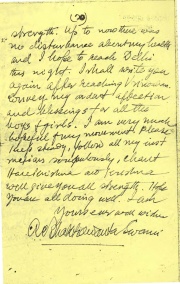 strength. Up to now there was
no disturbance about my health
and I hope to reach Delhi
this night. I shall write you
again after reaching Vrindaban.
Convey my ardent affection
and blessings for all the
boys & girls. I am very much
hopeful of my movement. Please
keep steady, follow all my inst
scrupulously, chant
Hare Krishna and Krishna
will give you all strength. Hope
you are all doing well. I am
Yours ever well wisher
A. C. Bhaktivedanta Swami